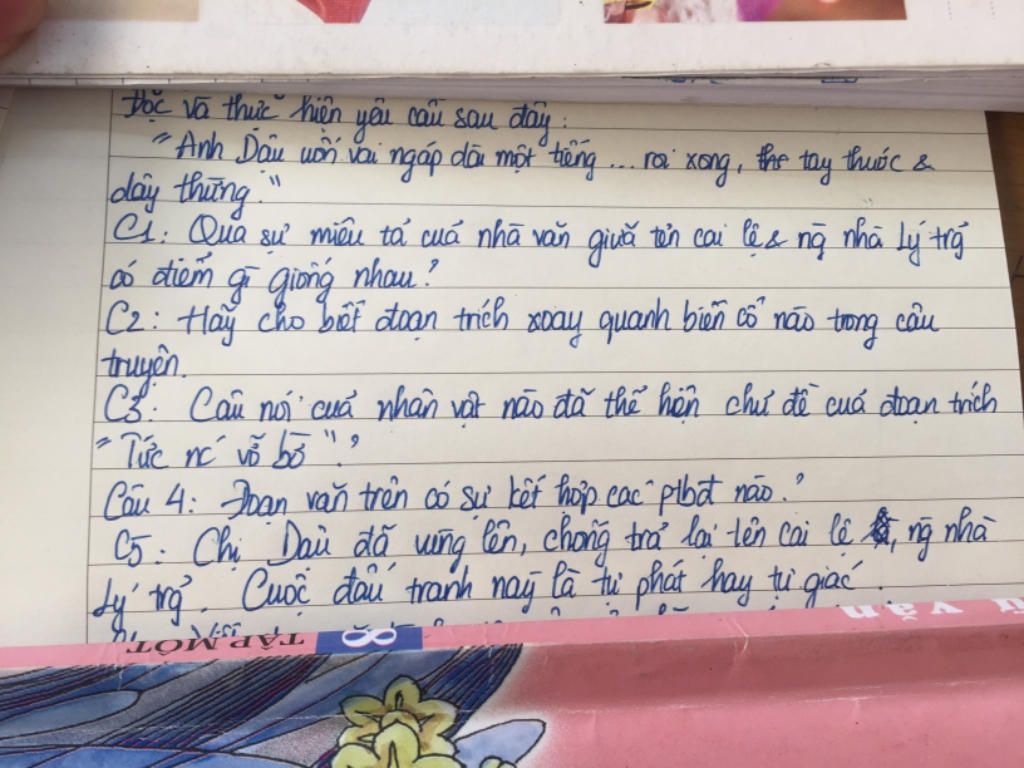 Đọc và thực hiện yêu cầu sau đây:
" Anh Dậu uốn vai ngáp dài một tiếng ... roi xong, tay thước &
dây thừng "
C1: Qua sự miêu tả của nhà văn giữa tên cai lệ & ng nhà Lý trg
có điểm gì giống nhau?
C2: Hãy cho biết đoạn trích xoay quanh biến cố nào trong câu
truyện.
C3: Câu nói của nhân vật nào đã thể hiện chủ đề của đoạn trích
" Tức nc vỡ bờ "?
Câu 4: Đoạn văn trên có sự kết hợp các ptbđ nào?
C5: Chị Dậu đã vùng lên, chống trả lại tên cai lệ, ng nhà
Lý trg. Cuộc đấu tranh này là tự phát hay tự giác.
ữ văn
8
TẬP MỘT